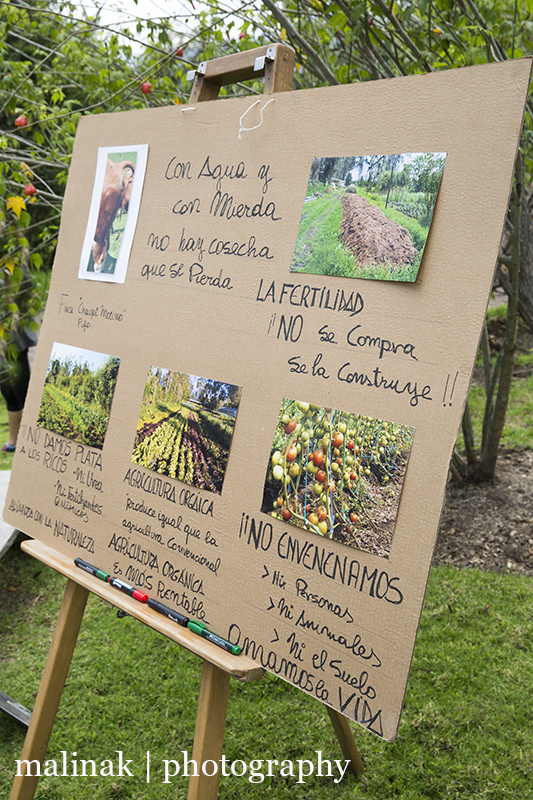 con Agua y
con Mierda
no hay cosecha
que se Pierda
Finca "Chaupi Molino"
Pifo
LA FERTILIDAD
¡¡NO se Compra
se la Construye !!
¡¡NO DAMOS PLATA
A LOS RICOS - Ni Urea
Ni Fertilizantes
Químicos
ALIANZA CON LA NATURALEZA
AGRICULTURA ORGANICA
produce igual que la
agricultura convencional
AGRICULTURA ORGANICA
Es MAS Rentable
¡¡NO ENVENENAMOS
> Ni Personas
> Ni Animales
> Ni el Suelo
Amamos la VIDA
malinak | photography